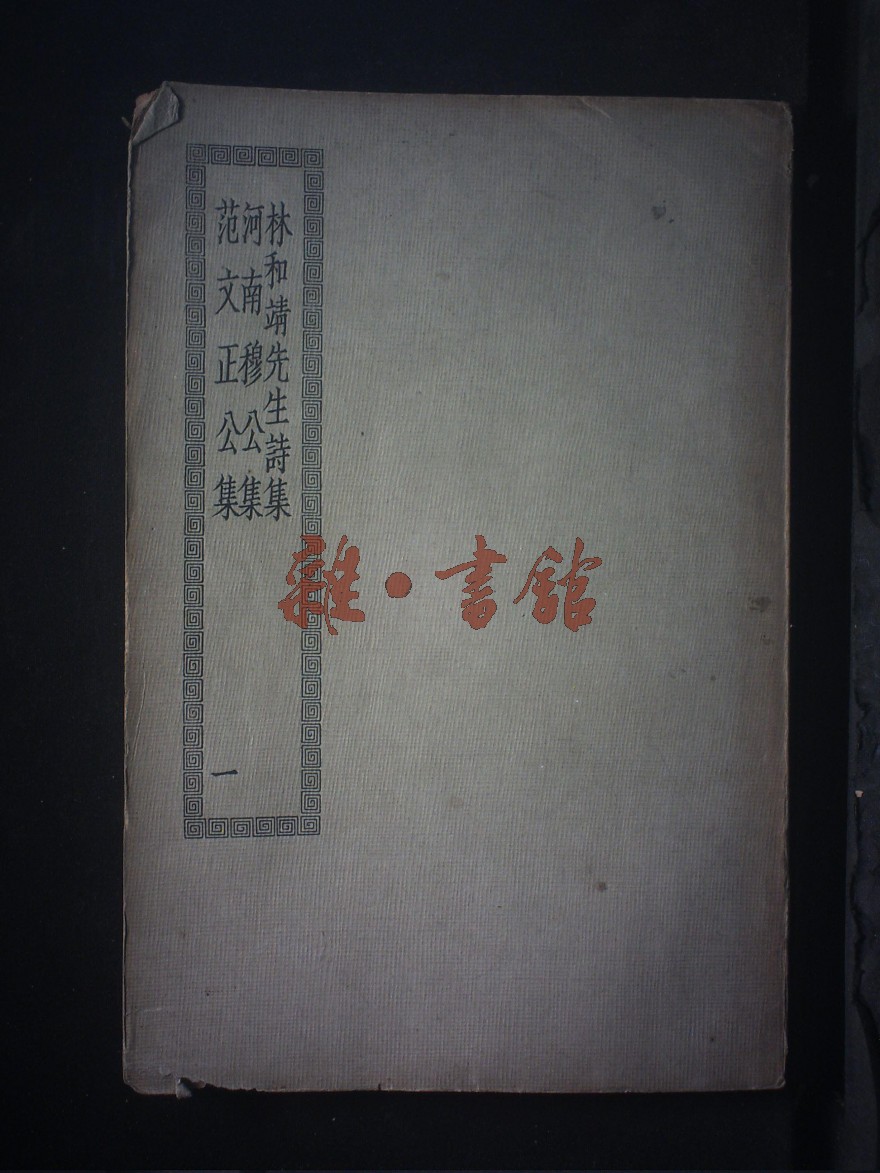 林和靖先生詩集
河南穆公集
范文正公集
一
雜·書館